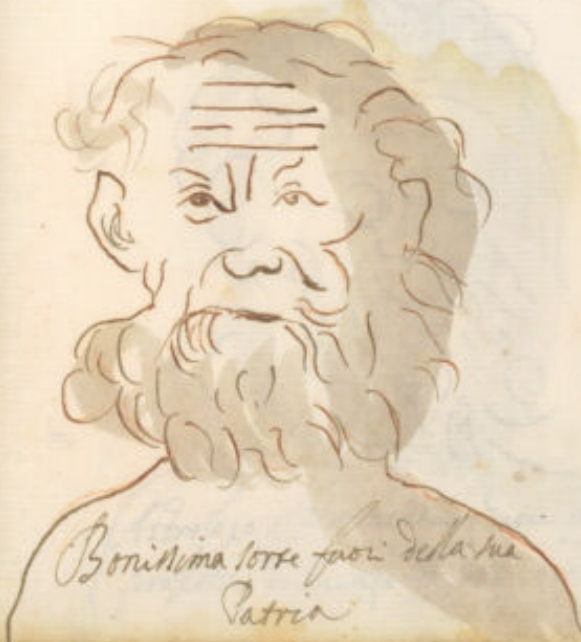 Bonissima sorte fuori della sua
Patria